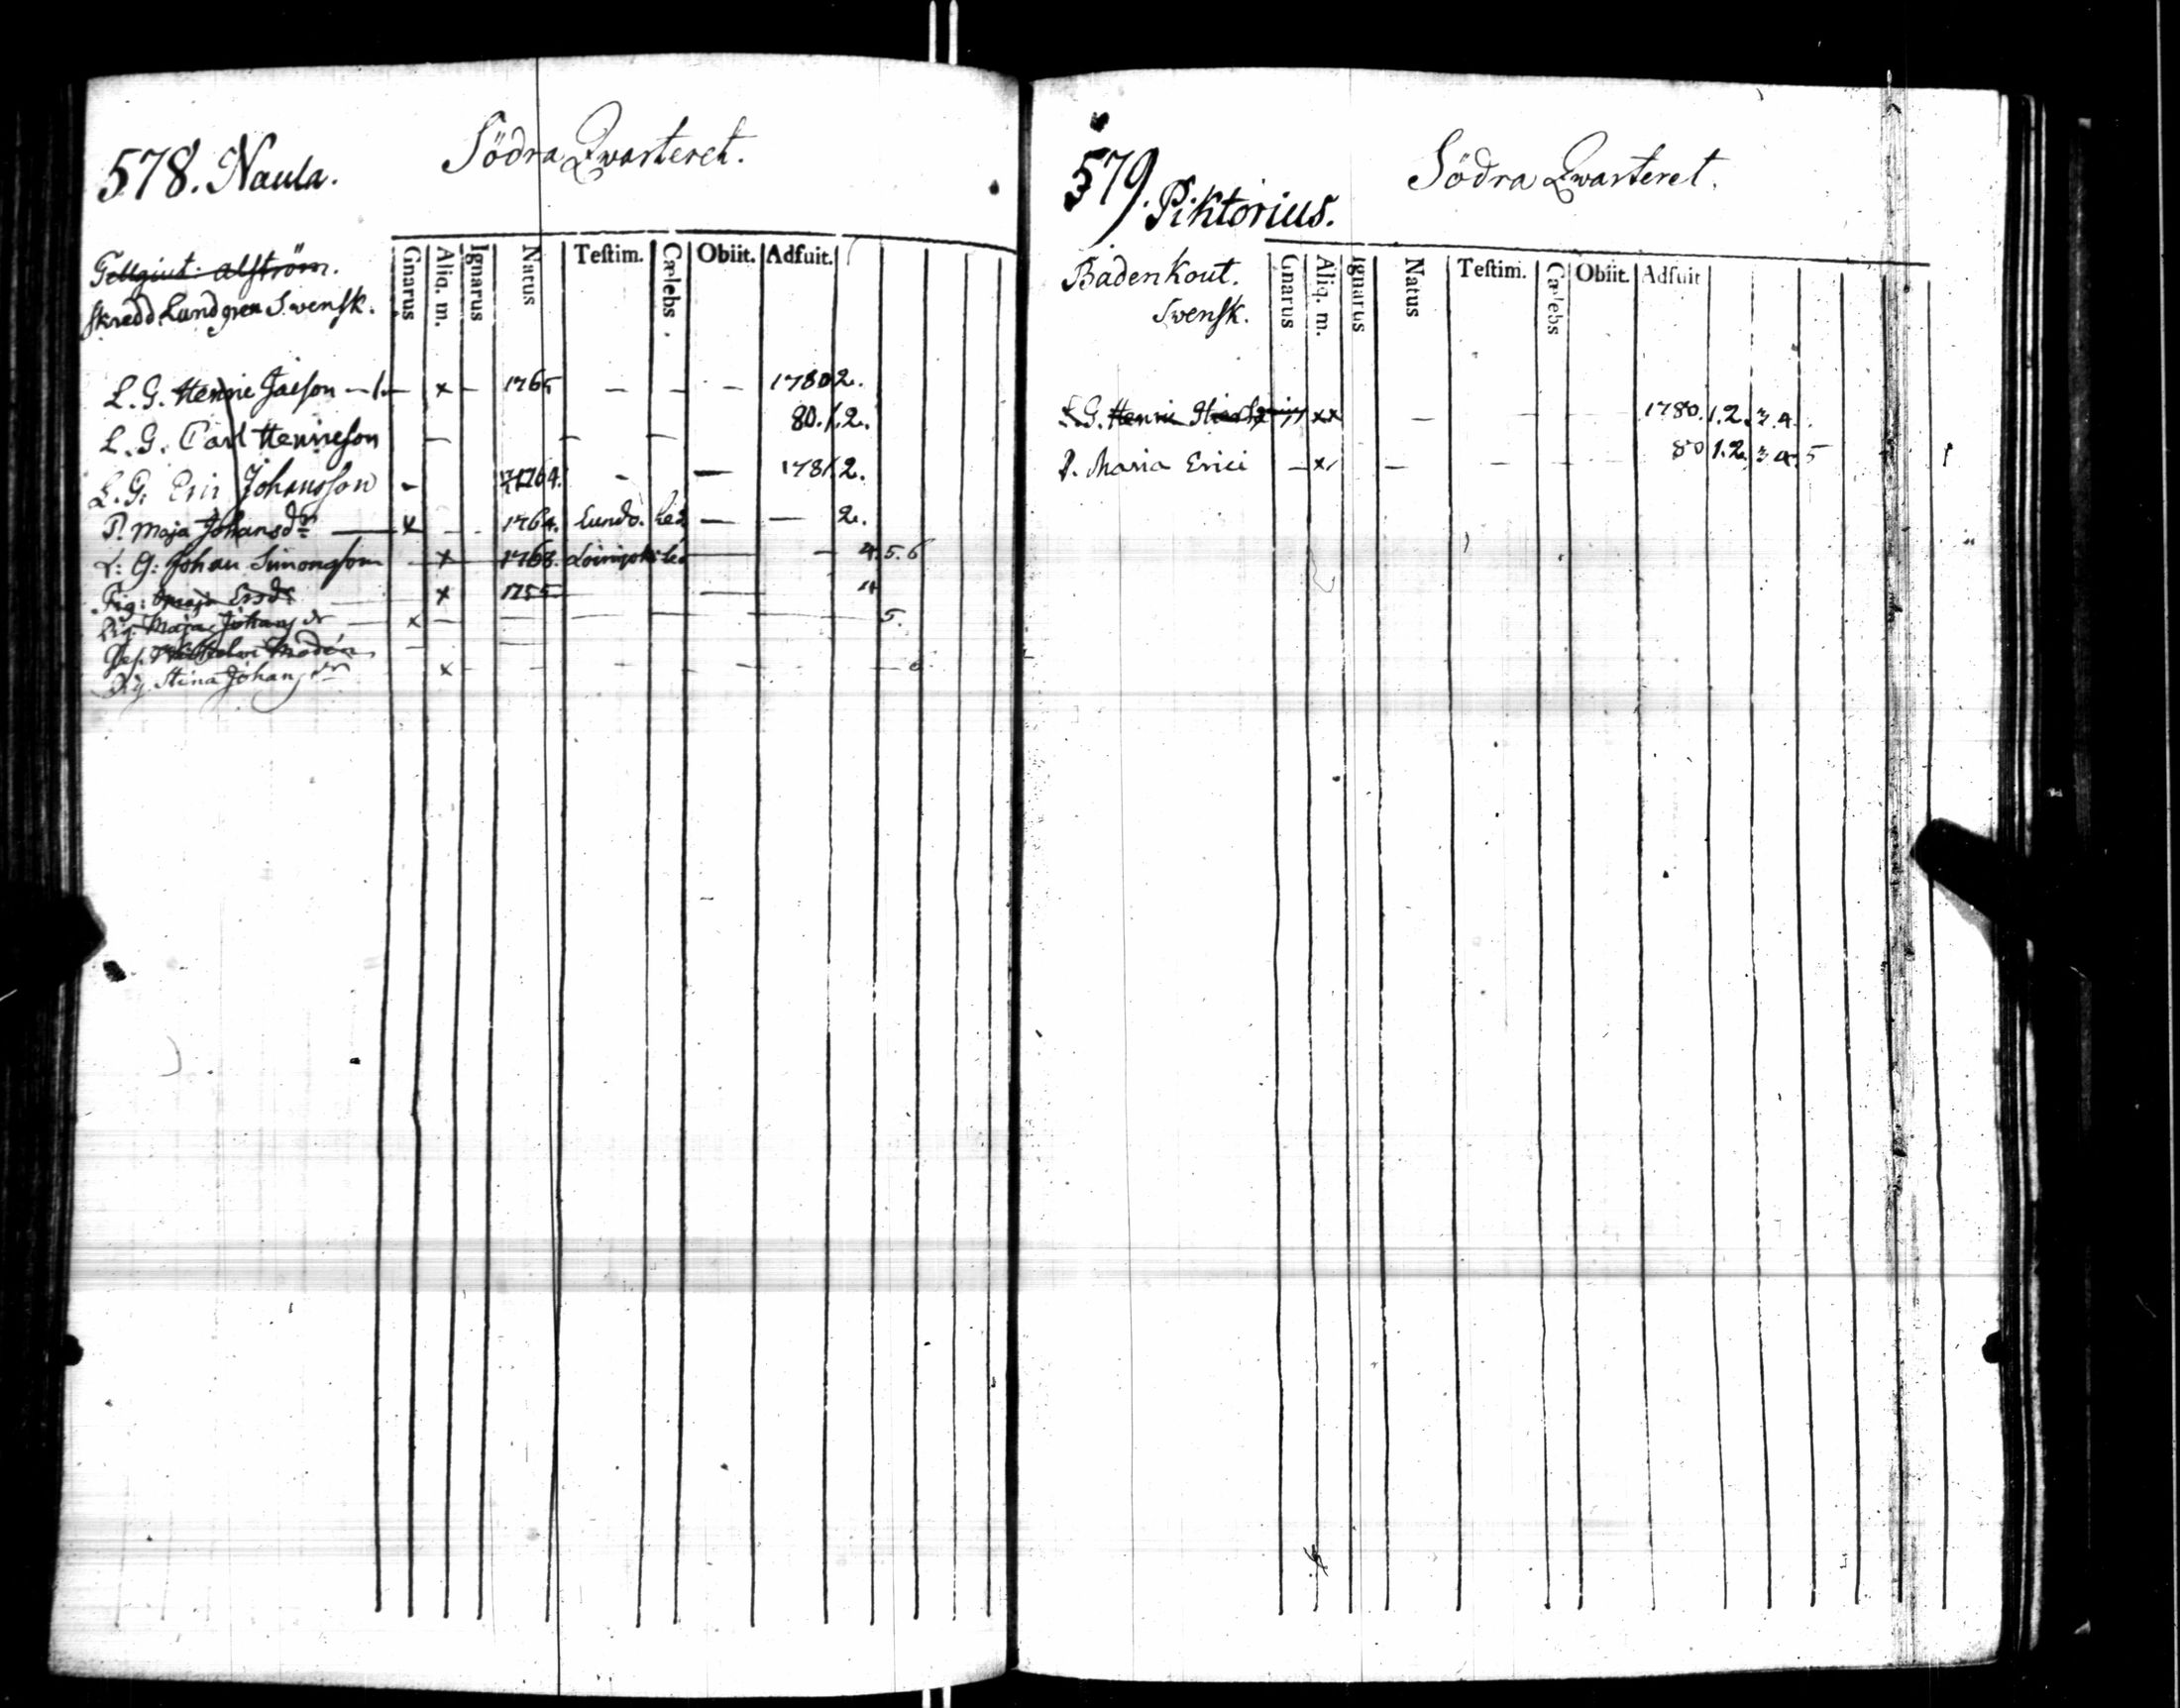 578. Naula.
Södra Qvarteret.
Gnarus Aliq. m. Ignarus Natus Testim. Cælebs Obiit. Adfuit.
Alström.
Skredd. Lundgren Swensk.
L. G. Henric Jacson — x — 1765 — — — 1780 2.
L. G. Carl Henricson — — — 80. 1. 2.
L. G. Eric Johansson — 1764. — — 1781. 2.
P. Maja Johansdr — x — 1764. Lundo. led — — 2.
L: G: Johan Simonsson — x — 1768. led — — 4. 5. 6
Pig: Maja Ersdr — x 1755 — 4
Pig. Maja Johansdr — x — — — — — 5.
Ges. Modén — —
Pig. Stina Johansdr x — — — — — 6
579. Piktorius.
Södra Qvarteret.
Gnarus Aliq. m. Ignarus Natus Testim. Cælebs Obiit. Adfuit
Badenkout.
Swensk.
L. G. Henric xx — — — 1780. 1. 2. 3. 4.
P. Maria Erici — x — — — 80 1. 2. 3 4. 5